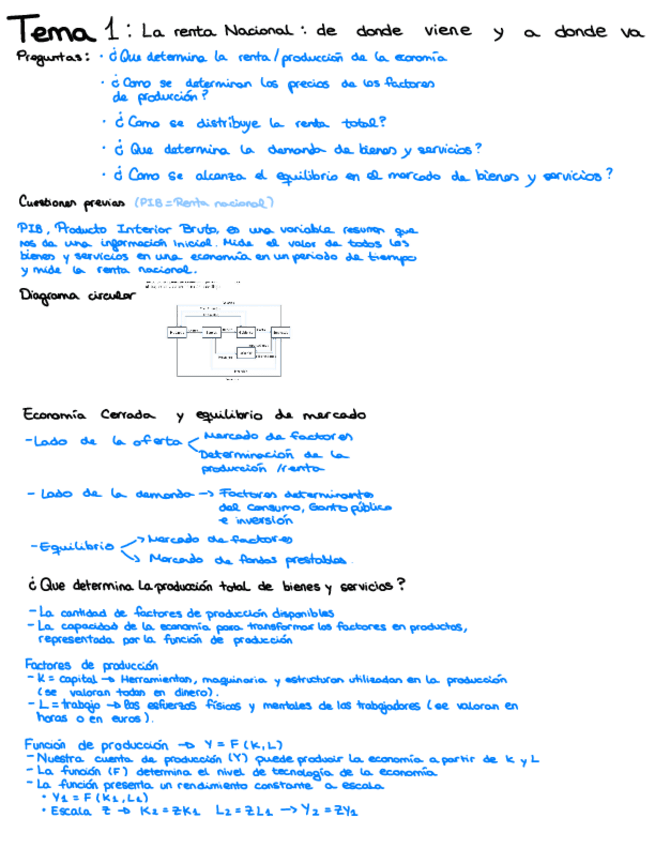 Tema 1: La renta Nacional: de donde viene y a donde va
Preguntas: · ¿Que determina la renta/producción de la economía
· ¿Como se determinan los precios de los factores
de producción?
· ¿Como se distribuye la renta total?
· ¿Que determina la demanda de bienes y servicios?
· ¿Como se alcanza el equilibrio en el mercado de bienes y servicios?
Cuestiones previas (PIB = Renta nacional)
PIB, Producto Interior Bruto, es una variable resumen que
nos da una información inicial. Mide el valor de todos los
bienes y servicios en una economía en un periodo de tiempo
y mide la renta nacional.
Diagrama circular
Economía Cerrada y equilibrio de mercado
- Lado de la oferta Mercado de factores
Determinación de la
producción/renta
- Lado de la demanda → Factores determinantes
del consumo, Gasto público
e inversión
- Equilibrio → Mercado de factores
→ Mercado de fondos prestables.
¿Que determina la producción total de bienes y servicios?
- La cantidad de factores de producción disponibles
- La capacidad de la economía para transformar los factores en productos,
representada por la función de producción
Factores de producción
- K = capital → Herramientas, maquinaria y estructuras utilizadas en la producción
(se valoran todas en dinero).
- L = trabajo → los esfuerzos físicos y mentales de los trabajadores (se valoran en
horas o en euros).
Función de producción → Y = F(K,L)
- Nuestra cuenta de producción (Y) puede producir la economía a partir de K y L
- La función (F) determina el nivel de tecnología de la economía
- La función presenta un rendimiento constante a escala
· Y1 = F(K1, L1)
· Escala Z → K2 = ZK1 L2 = ZL1 → Y2 = ZY1